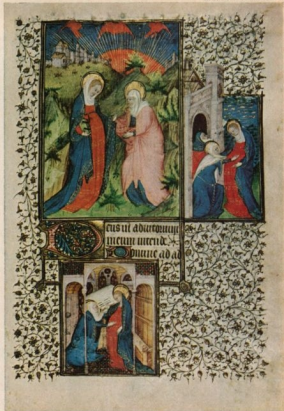 Deus in adiutorium
meum intende
Domine ad ad